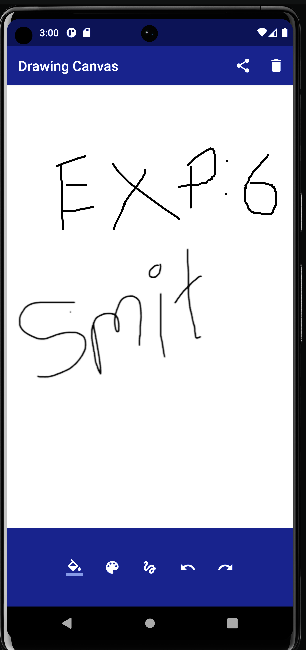 3:00
Drawing Canvas
EXP:6
Smit